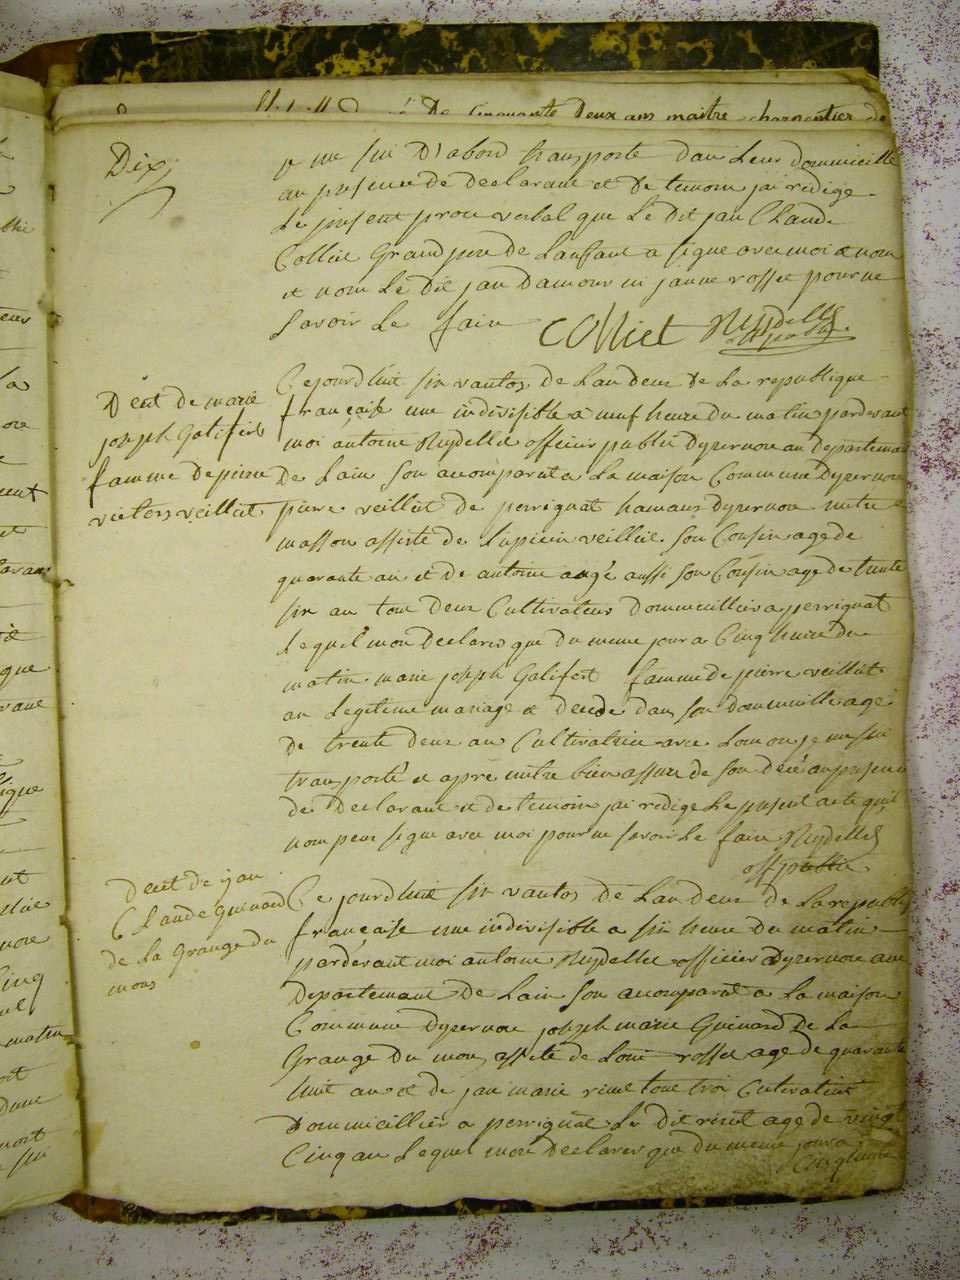 De cinquante Deux ans maitre charpentier de
Dix
je me sui D'abord transporte dan Leur dommicille
au presence de declarant et de temoin jai redige
Le present proce verbal que Le dit jan Claude
Colliet Grand pere de Lanfant a signe avec moi e non
et non Le dit jan Damour ni janne rosset pour ne
savoir Le fair Colliet Nuydellet
off public
Decet de marie
joseph Galifert
famme de piere
victers veilliet
Cejourdhuit six vantos de Lan deux de La republique
française une indivisible a neuf heure du matin pardevant
moi antoine Nuydellet officier public Dyzernore au departemant
de Lain son acomparut a La maison Commune Dyzernore
piere veilliet de perrignat hamaux Dyzernore metre
masson assisté de Lupicin veilliet son Cousin age de
quarante an et de antoine augé aussi son Cousin age de trente
six an tou deux Cultivateur dommicillier a perrignat
Lequel mon declarer que du meme jour a Cinq heure du
matin marie joseph Galifert famme de pierre veilliet
an Legitime mariage e decede dan son dommicille agé
de trente deux an Cultivatrice avec Lomon je me sui
transporté et apre metre bien assure de son decé an presence
de declarant et de temoin jai redige Le present acte qu'il
nom peux signe avec moi pour ne savoir Le fair Nuydellet
off public
Decet de jan
Claude Guinard
de La Grange du
mons
Ce jourdhuit six vantos de Lan deux de La republique
française une indivisible a six heure du matin
pardevant moi antoine Nuydellet officier Dyzernore au
departemant de Lain son acomparut a La maison
Commune Dyzernore joseph marie Guinard de La
Grange du mon assite de Loui rosset age de quarante
huit an et de jan marie rinet tout troi Cultivateur
dommicillier a perrignat Le dit rinet age de vingt
Cinq an Lequel mon declarer que du meme jour a
Cinq heure